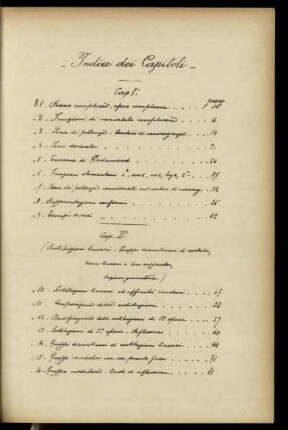 Indice dei Capitoli
Cap I.
pag.
§ 1. Piano complesso, sfera complessa
" 2. Funzioni di variabile complessa 6
" 3. Serie di potenze - Cerchio di convergenza 14
" 4. Serie derivate 21
" 5. Teorema di Hadamard
" 6. Funzioni elementari
" 7. Serie di potenze considerate sul cerchio di converg. 32
" 8. Rappresentazione conforme 36
" 9. Esempi 42
Cap. II.
(Sostituzioni lineari - Gruppi discontinui di sostitu-
zioni lineari e loro rappresen-
tazione geometrica)
" 10. Sostituzioni lineari ed affinità circolari 47
" 11. Composizione delle sostituzioni
" 12. Classificazione delle sostituzioni di 1ª specie 57
" 13. Sostituzioni di 2ª specie - Riflessioni
" 14. Gruppi discontinui di sostituzioni lineari
" 15. Gruppi 71
" 16. Gruppo modulare 81